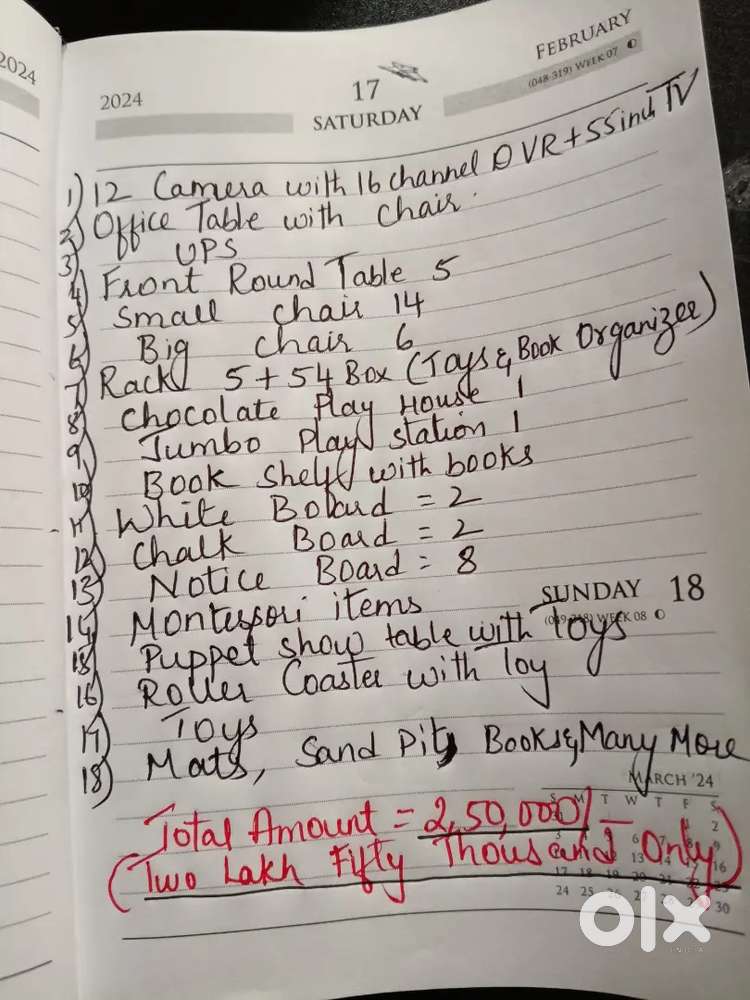 2024
2024
17
SATURDAY
FEBRUARY
(048-319) WEEK 07
1) 12 Camera with 16 channel DVR + 55 inch TV
2) Office Table with chair
3) UPS
4) Front Round Table 5
5) Small chair 14
6) Big chair 6
7) Rack 5 + 54 Box (Toys & Book Organizer)
8) Chocolate Play House 1
9) Jumbo Play station 1
10) Book Shelf with books
11) White Board = 2
12) Chalk Board = 2
13) Notice Board = 8
SUNDAY 18
(049-318) WEEK 08
14) Montessori items
15) Puppet show table with Toys
16) Roller Coaster with Toy
17) Toys
18) Mats, Sand Pit, Books & Many More
MARCH '24
Total Amount = 2,50,000/-
(Two Lakh Fifty Thousand Only)
S M T W T F S
2
6 9
13 16
17 18 19 20 21 22 23
24 25 26 27 30
olx
INDIA